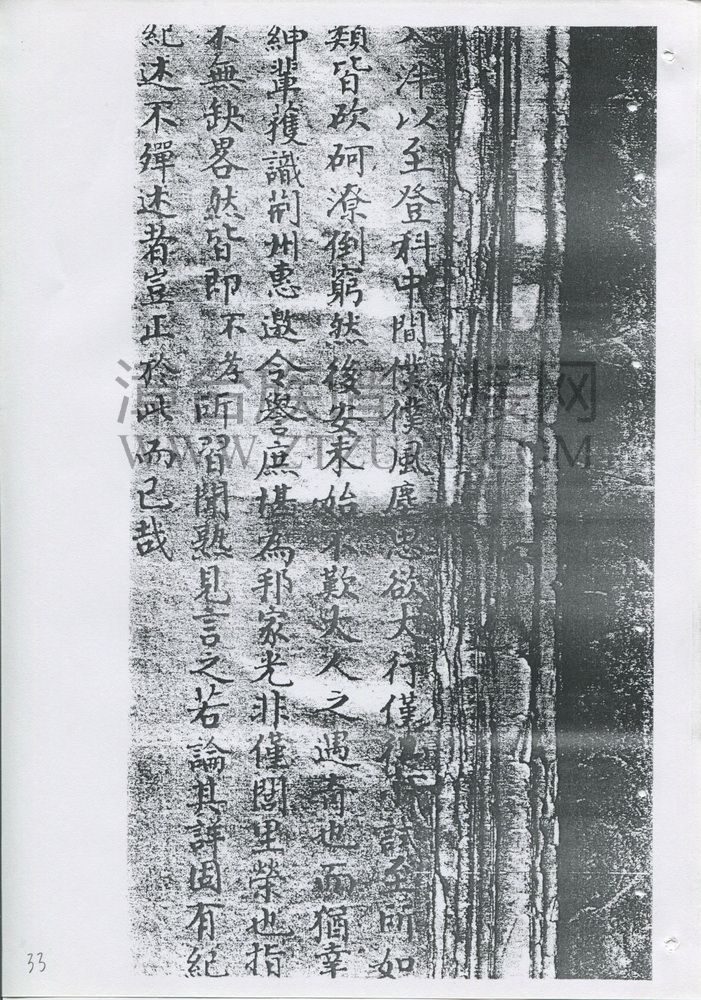 入泮以至登科中間僕僕風塵思欲大行僅試至所如
類皆砍砢潦倒窮然後安未始不歎大人之遇奇也而猶幸
紳輩獲識荊州惠邀令譽庶堪為邦家光非僅閭里榮也指
不無缺畧然皆即不孝所習聞熟見言之若論其詳固有紀
紀述不殫述者豈正於此而已哉
漳台族譜网
WWW.ZTZUPU.COM
33